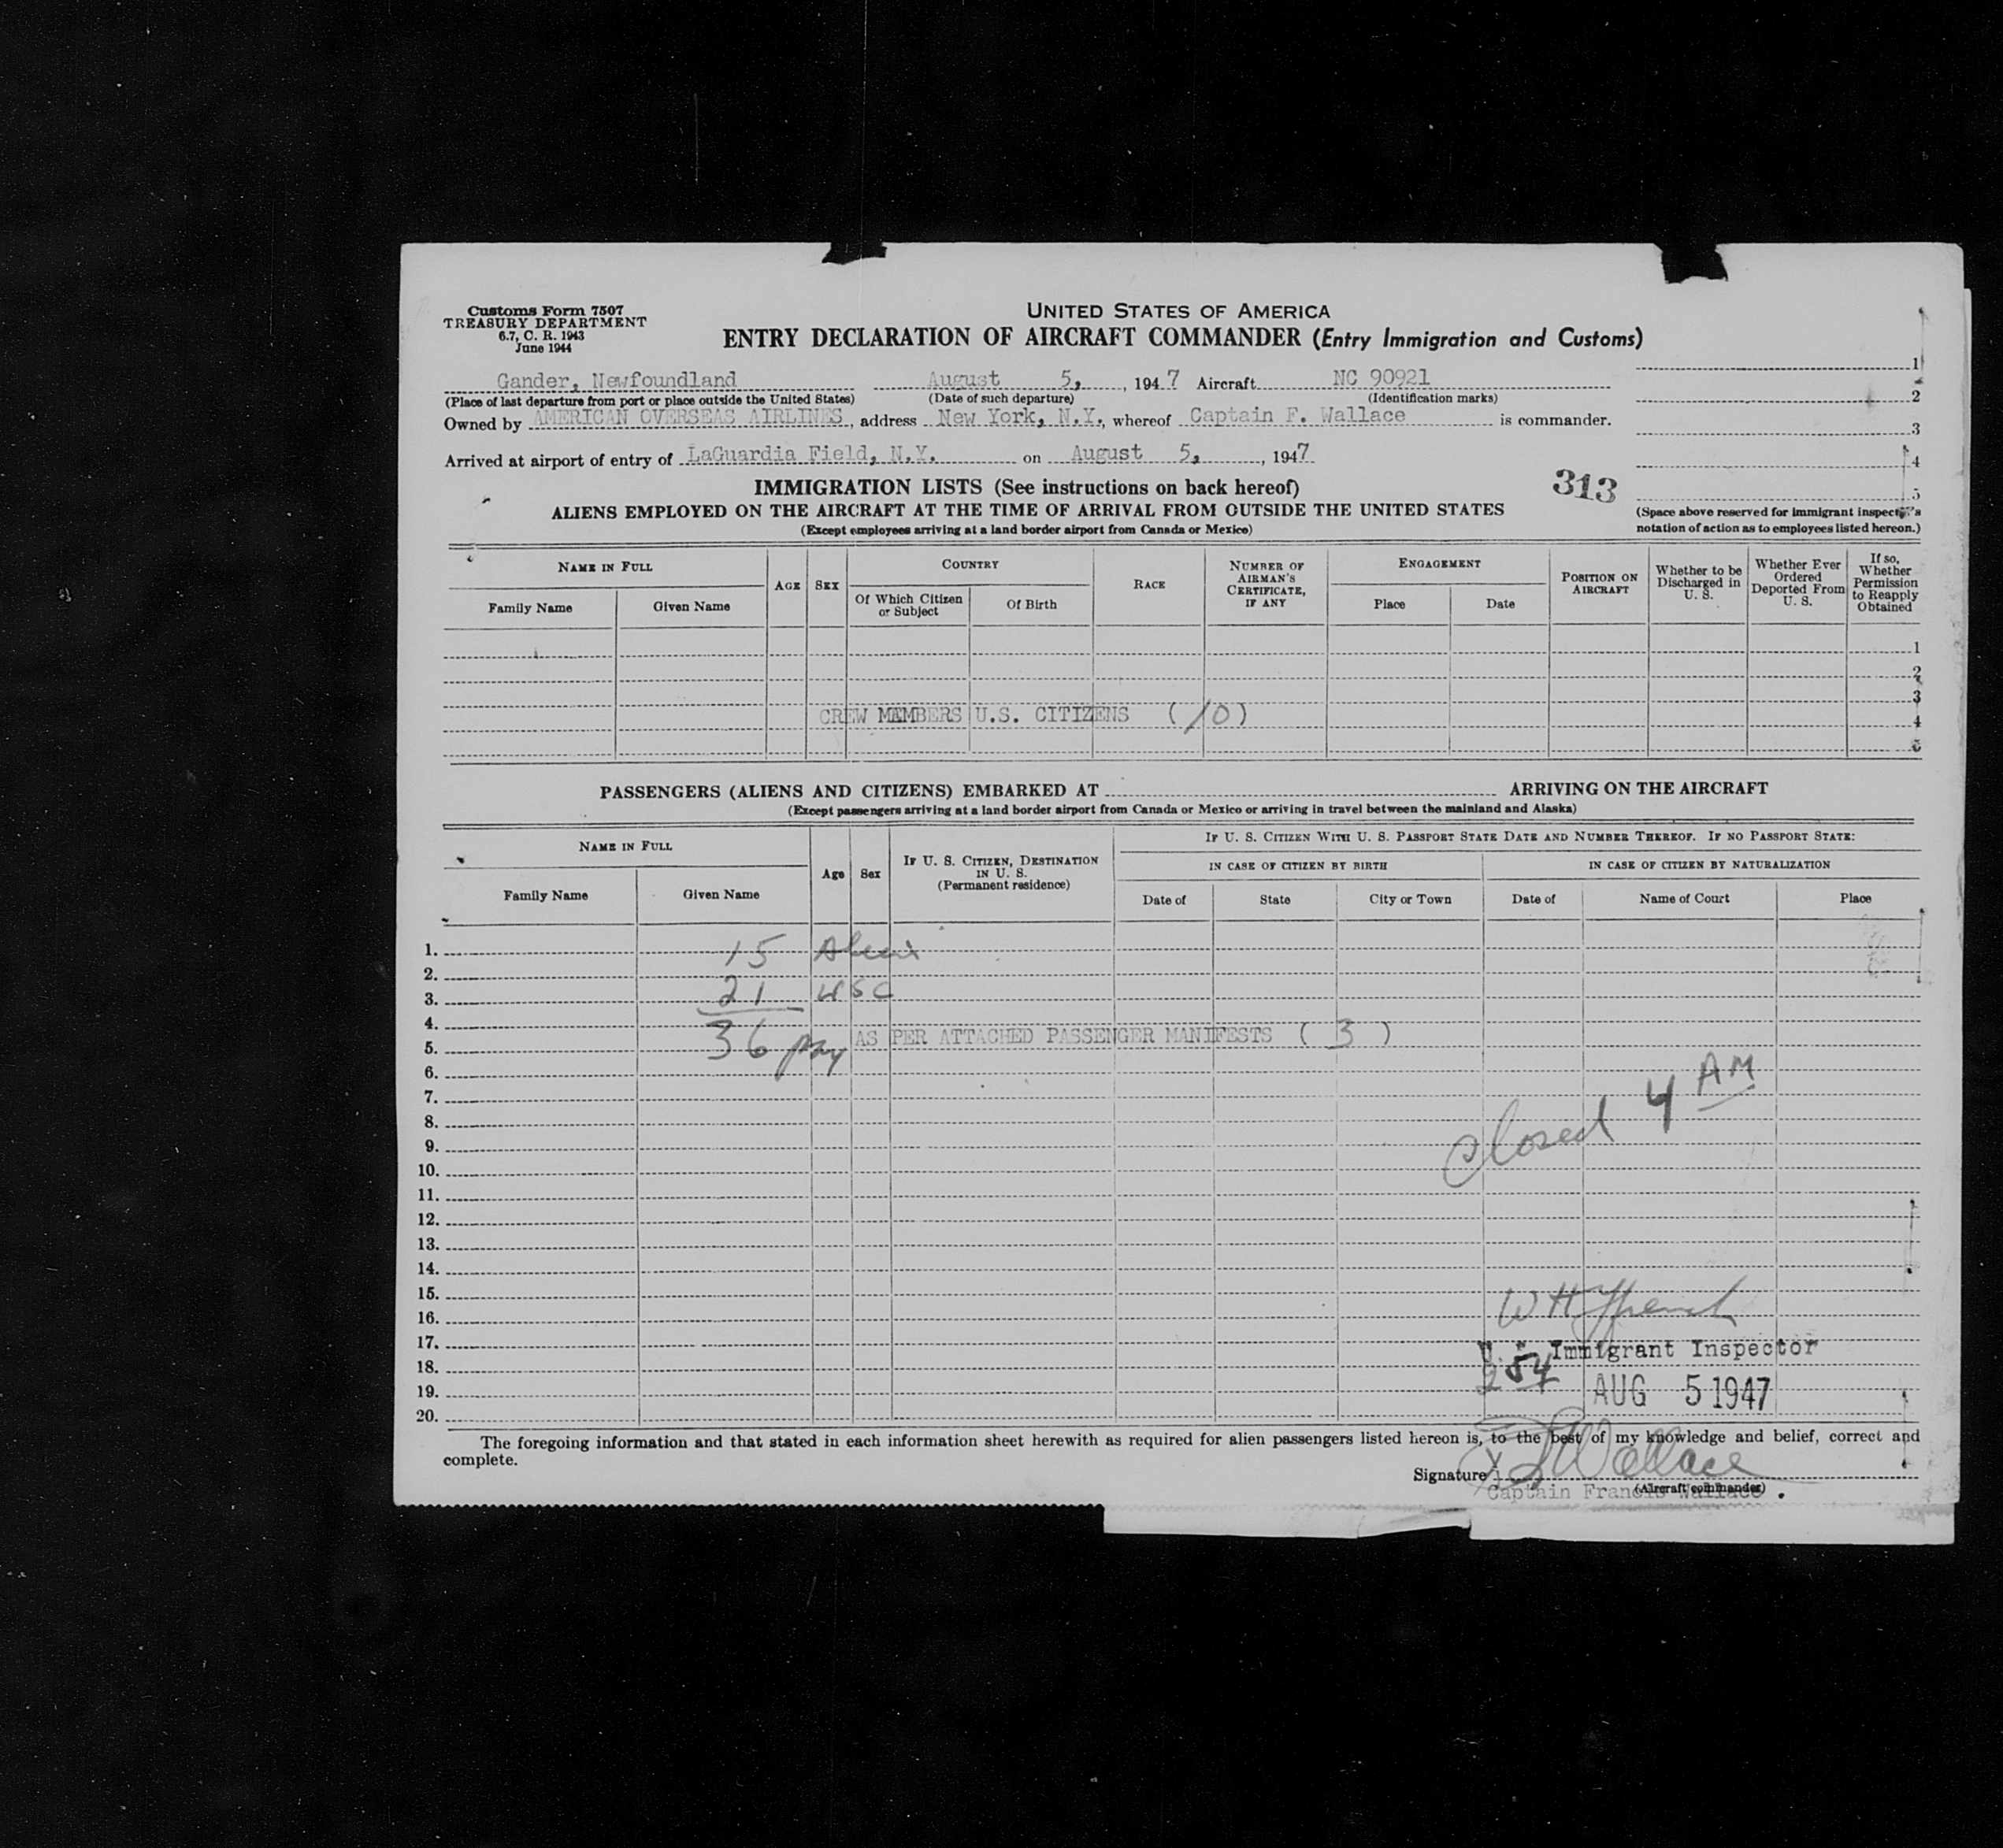 Customs Form 7507
TREASURY DEPARTMENT
6.7, C. R. 1943
June 1944
UNITED STATES OF AMERICA
ENTRY DECLARATION OF AIRCRAFT COMMANDER (Entry Immigration and Customs)
Gander, Newfoundland August 5, 1947 Aircraft NC 90921
(Place of last departure from port or place outside the United States) (Date of such departure) (Identification marks)
Owned by AMERICAN OVERSEAS AIRLINES, address New York, N.Y., whereof Captain F. Wallace is commander.
Arrived at airport of entry of LaGuardia Field, N.Y. on August 5, 1947
1
2
3
4
5
313
(Space above reserved for immigrant inspector's notation of action as to employees listed hereon.)
IMMIGRATION LISTS (See instructions on back hereof)
ALIENS EMPLOYED ON THE AIRCRAFT AT THE TIME OF ARRIVAL FROM OUTSIDE THE UNITED STATES
(Except employees arriving at a land border airport from Canada or Mexico)
NAME IN FULL
Family Name
Given Name
AGE
SEX
COUNTRY
Of Which Citizen or Subject
Of Birth
RACE
NUMBER OF AIRMAN'S CERTIFICATE, IF ANY
ENGAGEMENT
Place
Date
POSITION ON AIRCRAFT
Whether to be Discharged in U. S.
Whether Ever Ordered Deported From U. S.
If so, Whether Permission to Reapply Obtained
1
2
3
CREW MEMBERS U.S. CITIZENS (10)
4
5
PASSENGERS (ALIENS AND CITIZENS) EMBARKED AT ARRIVING ON THE AIRCRAFT
(Except passengers arriving at a land border airport from Canada or Mexico or arriving in travel between the mainland and Alaska)
NAME IN FULL
Family Name
Given Name
Age
Sex
IF U. S. CITIZEN, DESTINATION IN U. S.
(Permanent residence)
IF U. S. CITIZEN WITH U. S. PASSPORT STATE DATE AND NUMBER THEREOF. IF NO PASSPORT STATE:
IN CASE OF CITIZEN BY BIRTH
Date of
State
City or Town
IN CASE OF CITIZEN BY NATURALIZATION
Date of
Name of Court
Place
1. 15
2.
3. 21 USC
4.
5. 36 AS PER ATTACHED PASSENGER MANIFESTS ( 3 )
6.
7.
8.
Closed 4 AM
9.
10.
11.
12.
13.
14.
15.
16.
17. Immigrant Inspector
18.
19. AUG 5 1947
20.
The foregoing information and that stated in each information sheet herewith as required for alien passengers listed hereon is, to the best of my knowledge and belief, correct and
complete.
Signature Wallace
(Aircraft commander)
Captain Francis Wallace